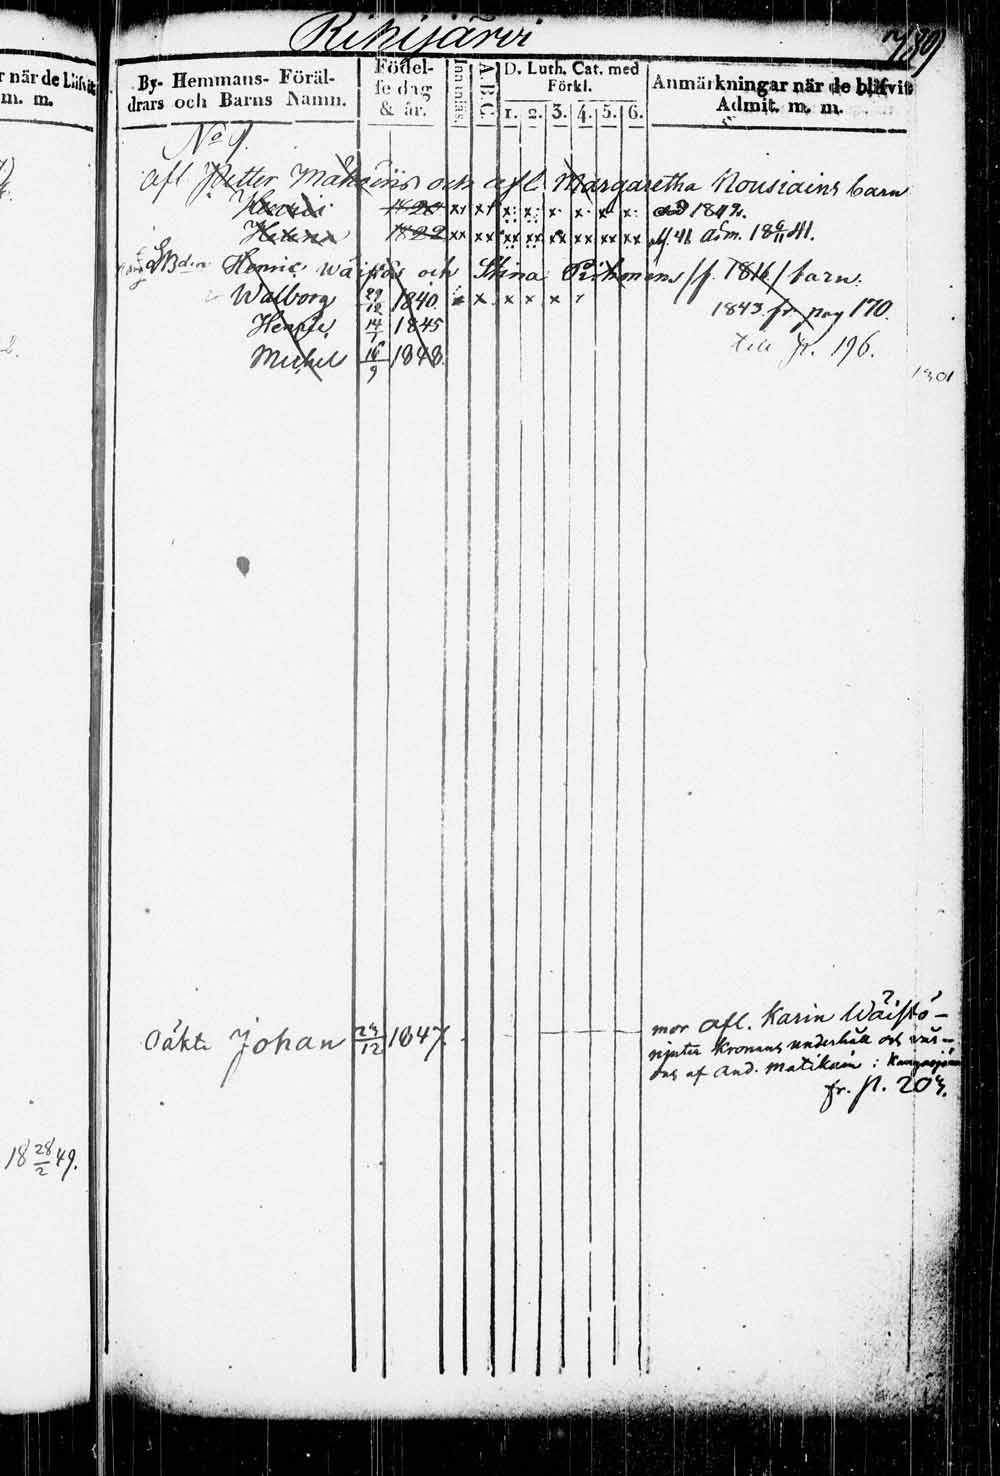 Rihijärvi
789
r när de Läsvit
m. m.
By- Hemmans- Föräl-
drars och Barns Namn.
Födel-
se dag
& år.
Innanläs.
A B C.
D. Luth. Cat. med
Förkl.
1. 2. 3. 4. 5. 6.
Anmärkningar när de blifvit
Admit. m. m.
No 9.
Afl Petter och afl Margaretha Rousiains barn
1820 x x x x x x x x 1842.
Helena 1822 xx xx xx xx xx xx xx xx adm. 18 6/11 41.
Henric Wäisäs och Stina Pitkonens /f. 1816/ barn.
Walborg 29/12 1840 x x x x x 1843 fr. pag 170.
Henric 14/1 1845
till p. 196.
Michel 16/9 1848.
1301
2.
Oäkta Johan 23/12 1847.
mor afl. Karin Wäisö-
njuter Kronans underhåll och
af And. Matikain :
fr. p. 203.
18 28/2 49.